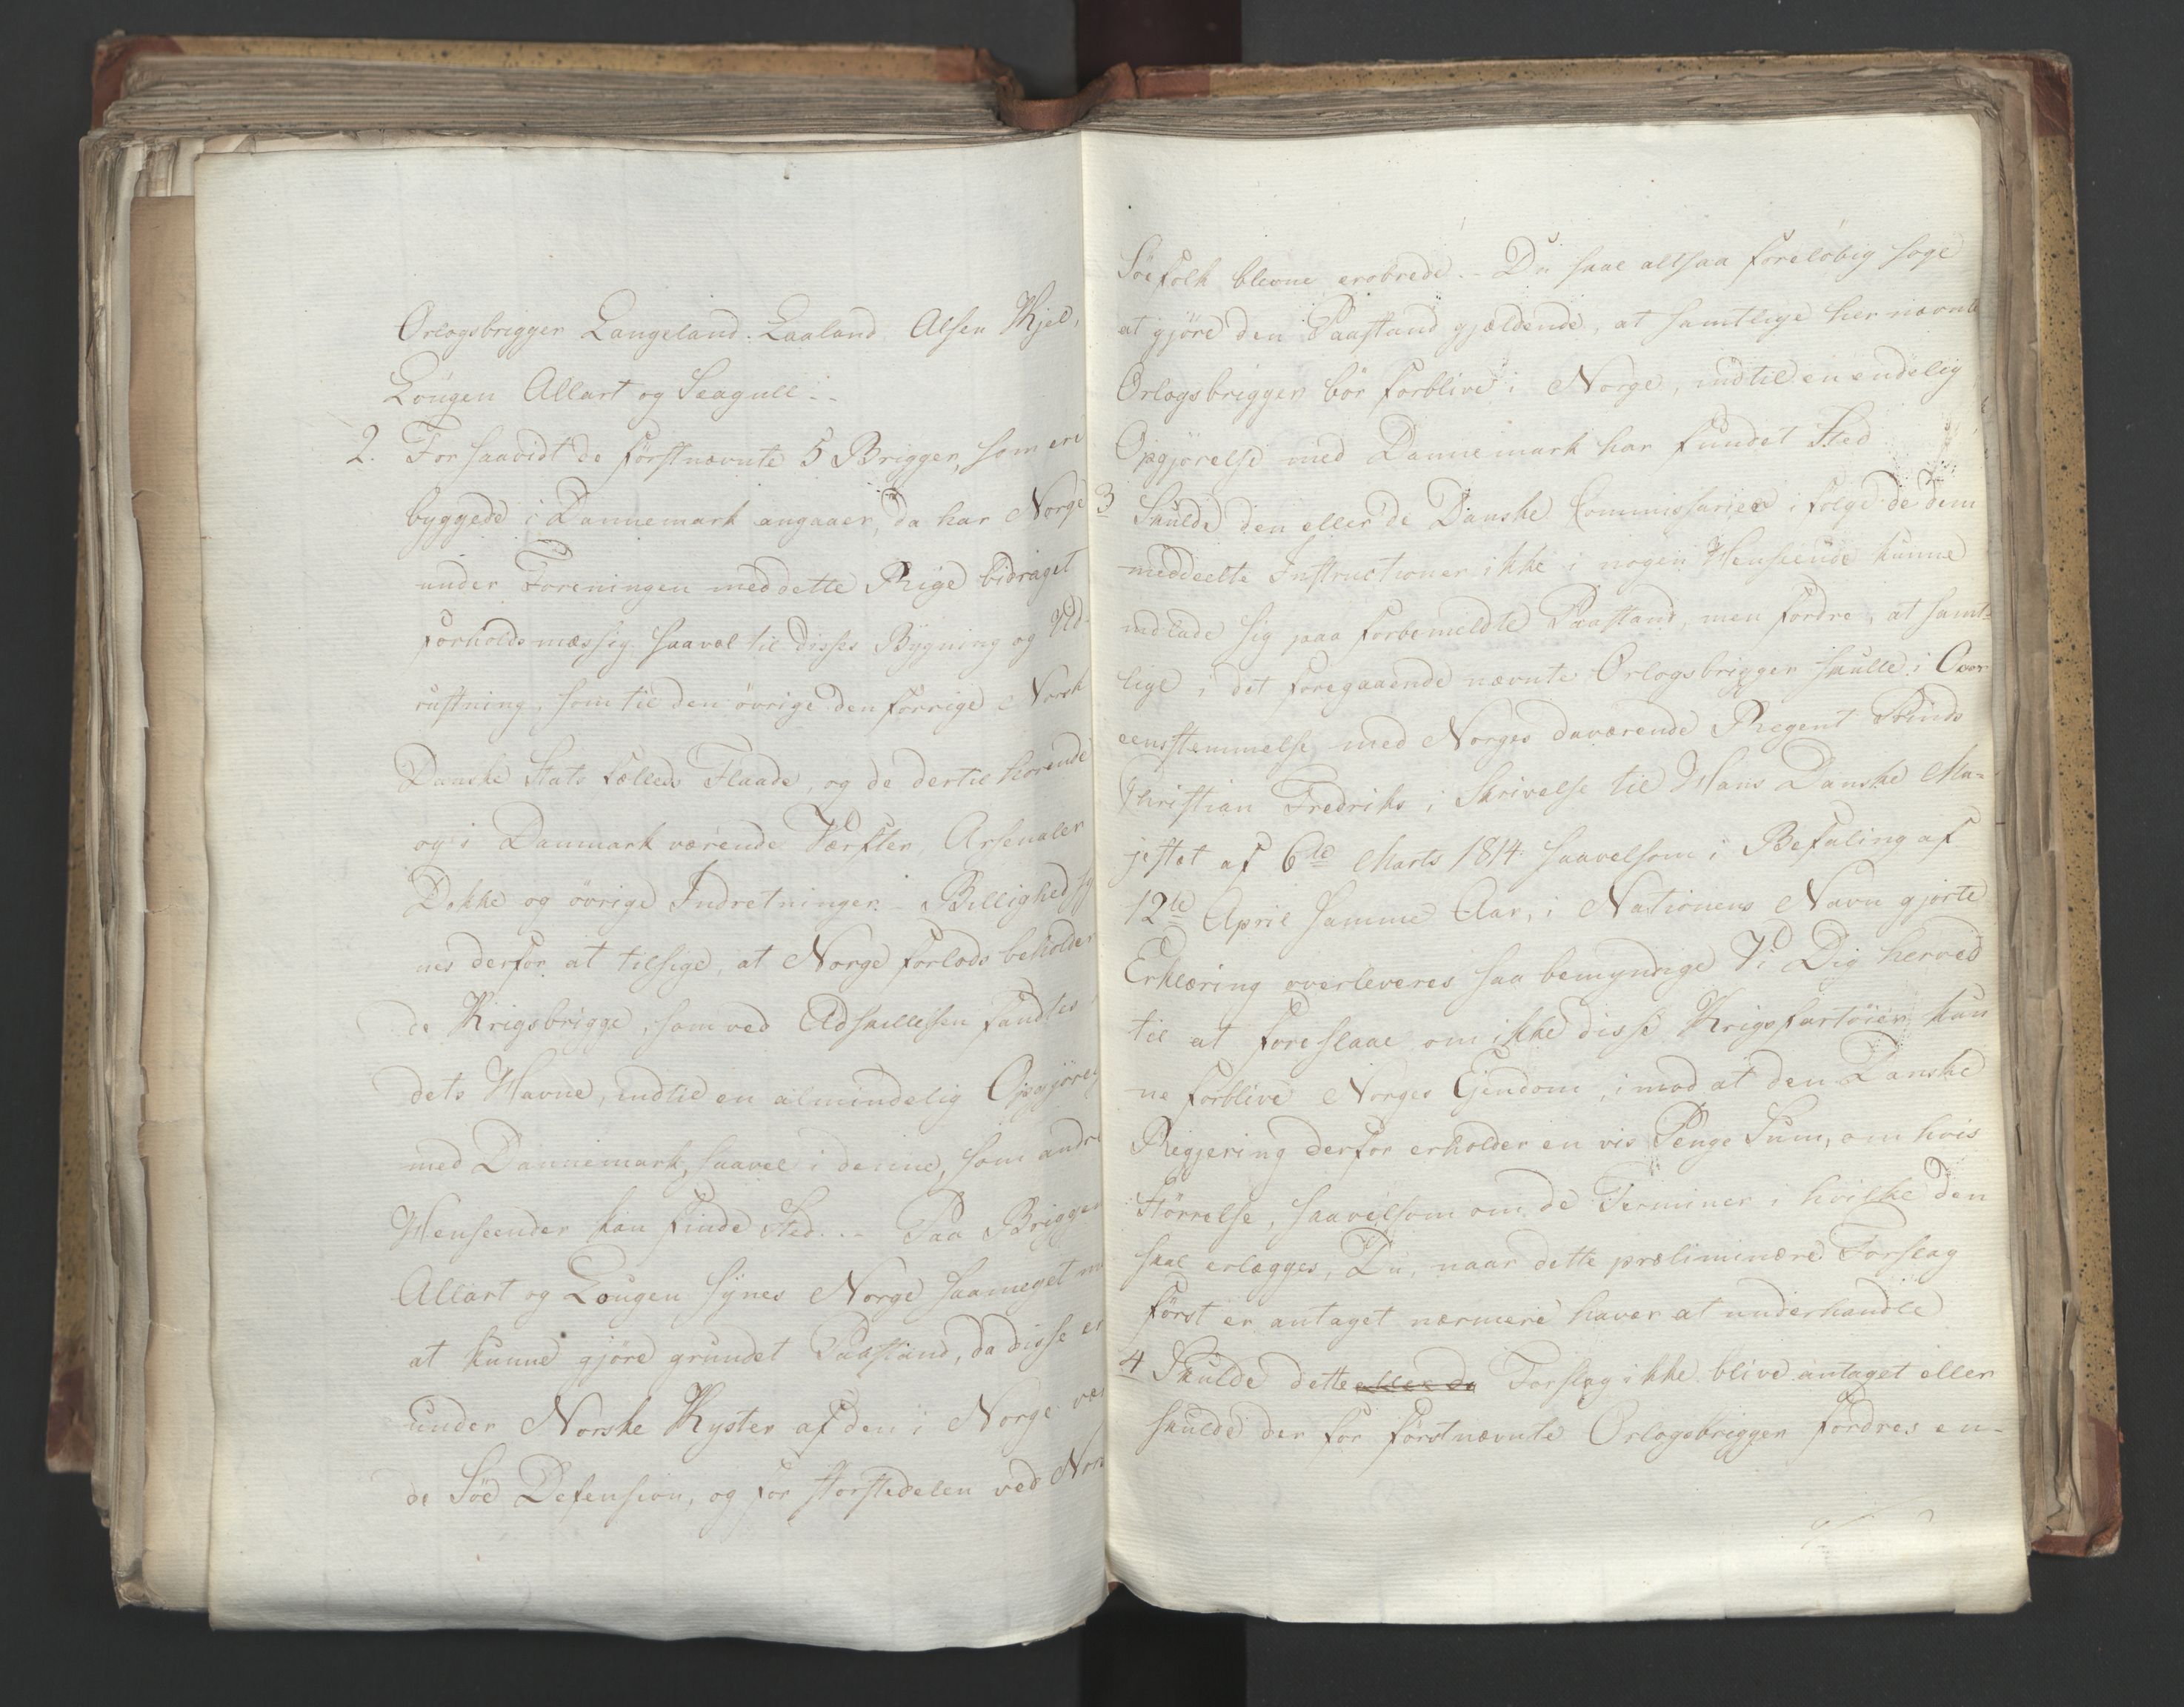 Orlogsbrigger Langeland. Laaland. Alsen Kjel,
Lougen Allart og Seagull..
2. For saavidt de förstnævnte 5 Brigger, som ere
byggede i Dannemark angaaer, da har Norge
under Foreningen med dette Rige bidraget
forholdsmæssig saavel til disses Bÿgning og Ud-
rustning, som til den övrige den forrige Norsk
Danske Stats fælleds Flaade, og de dertil hörende
og i Danmark værende Værfter, Arsenaler
Dokke og övrige Indretninger. - Billighed sy
nes derfor at tilsige, at Norge forlods beholder
de Krigsbrigge, som ved Adskillelsen fandtes i
dets Havne, indtil en almindelig Opgjörels
med Dannemark, saavel i denne, som andre
Henseender kan finde Sted... - Paa Briggen
Allart og Lougen sÿnes Norge saameget m
at kunne gjöre grundet Paastand, da disse er
under Norske Kyster af den i Norge vær
de Söe Defension, og for störstedelen ved Nors
Söefolk blevne erobrede. - Du skal altsaa foreløbig søge
at gjöre den Paastand gjældende, at samtlige her nævnte
Orlogsbrigger bör forblive i Norge, indtil en endelig
Opgjörelse med Dannemark har fundet Sted
3 Skulde den eller de Danske Commissarier i fölge de dem
meddeelte Instructioner ikke i nogen Henseende kunne
indlade sig paa forbemeldte Paastand, men fordre, at samt-
lige i det foregaaende nævnte Orlogsbrigger skulle i Over
eensstemmelse med Norges daværende Regent Prinds
Christian Fredriks i Skrivelse til Hans Danske Ma-
jestet af 6de Marts 1814 saavelsom i Befaling af
12te April samme Aar, i Nationens Navn gjorte
Erklæring overleveres saa bemyndige Vi Dig herved
til at foreslaae om ikke disse Krigsfartöier kun
ne forblive Norges Ejendom, imod at den Danske
Regjering derfor erholder en vis Penge Sum, om hvis
Störrelse, saavelsom om de Terminer i hvilke den
skal erlægges, Du, naar dette præliminære Forslag
först er antaget nærmere haver at underhandle
4 Skulde dette eller de Forslag ikke blive antaget eller
skulde der for förstnævnte Orlogsbrigger fordres en-